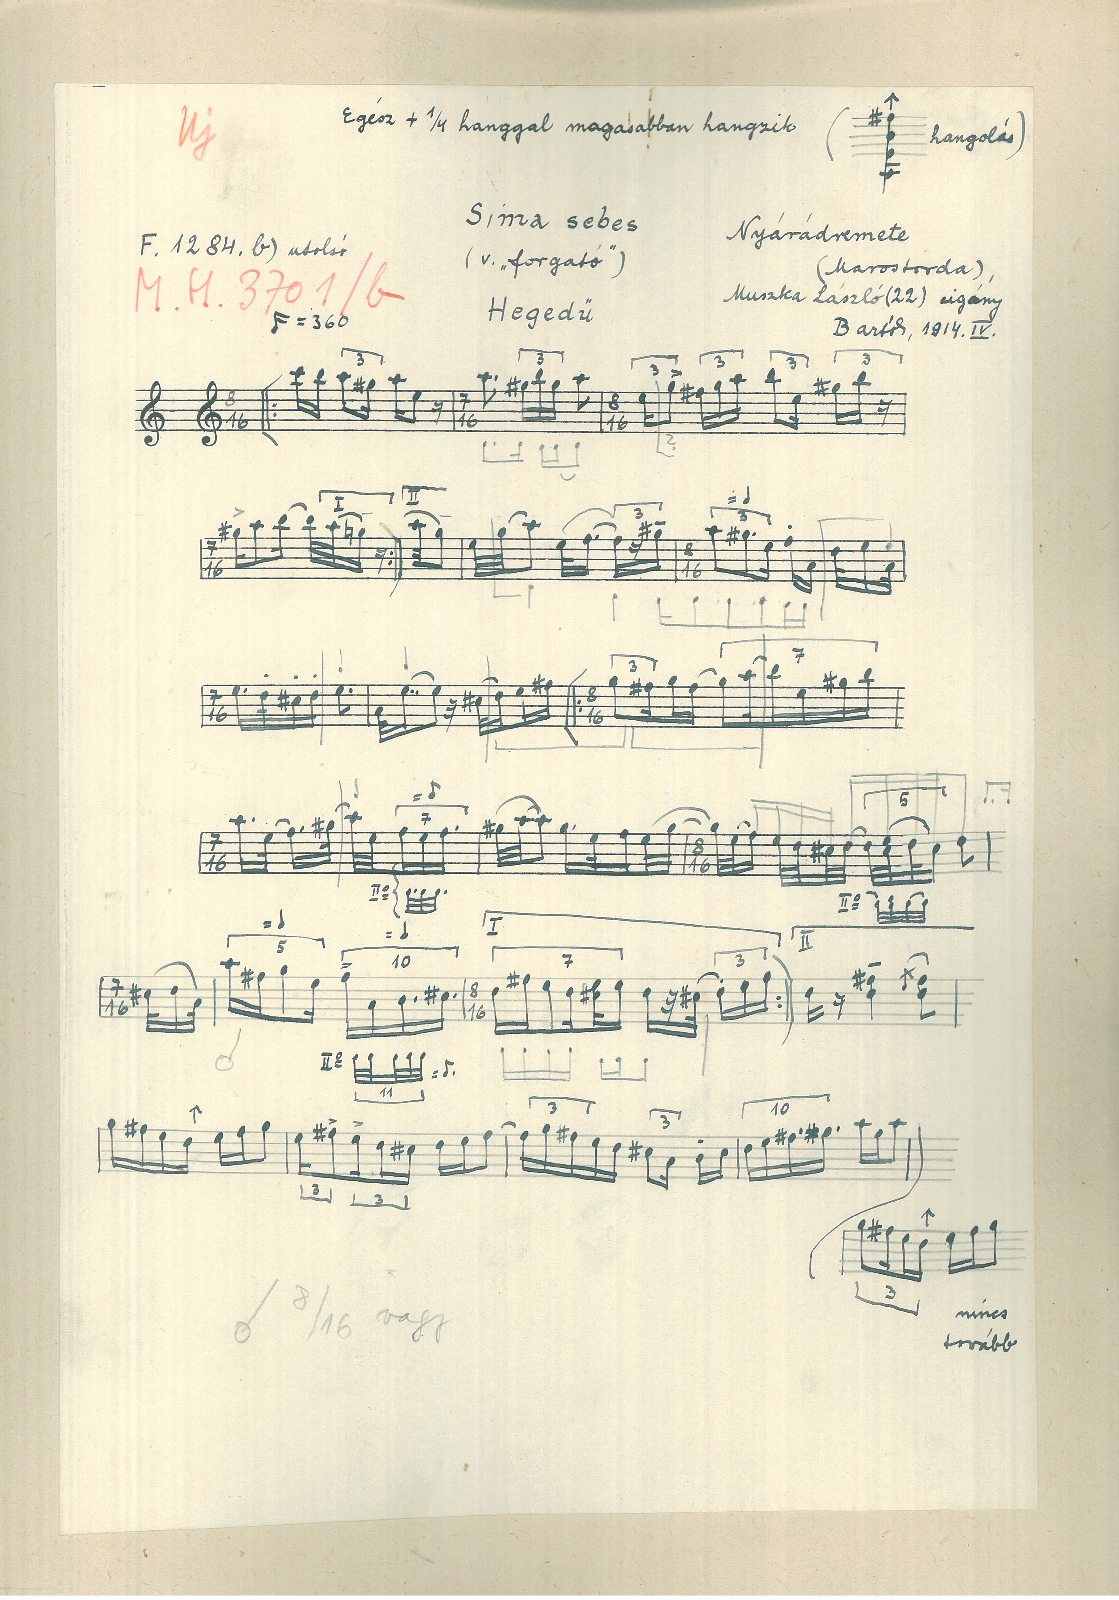 Uj
Egész + 1/4 hanggal magasabban hangzik
( hangolás)
F. 1284. b) utolsó
M. H. 3701/b
= 360
Sima sebes
(v. „forgató")
Hegedű
Nyárádremete
(Marostorda),
Muszka László (22) cigány
Bartók, 1914. IV.
3 3 3 3 3 3
8 16 7 16 8 16
?
I II 3 = 3
7 16 8 16
3 7
7 16 8 16
= 7 5
7 16 8 16
II⁰ = II⁰ =
= 5 = 10 I 7 3 II
7 16 8 16
II⁰ = 11 =
3 3 10
3 3
3
nincs
tovább
8/16 vagy